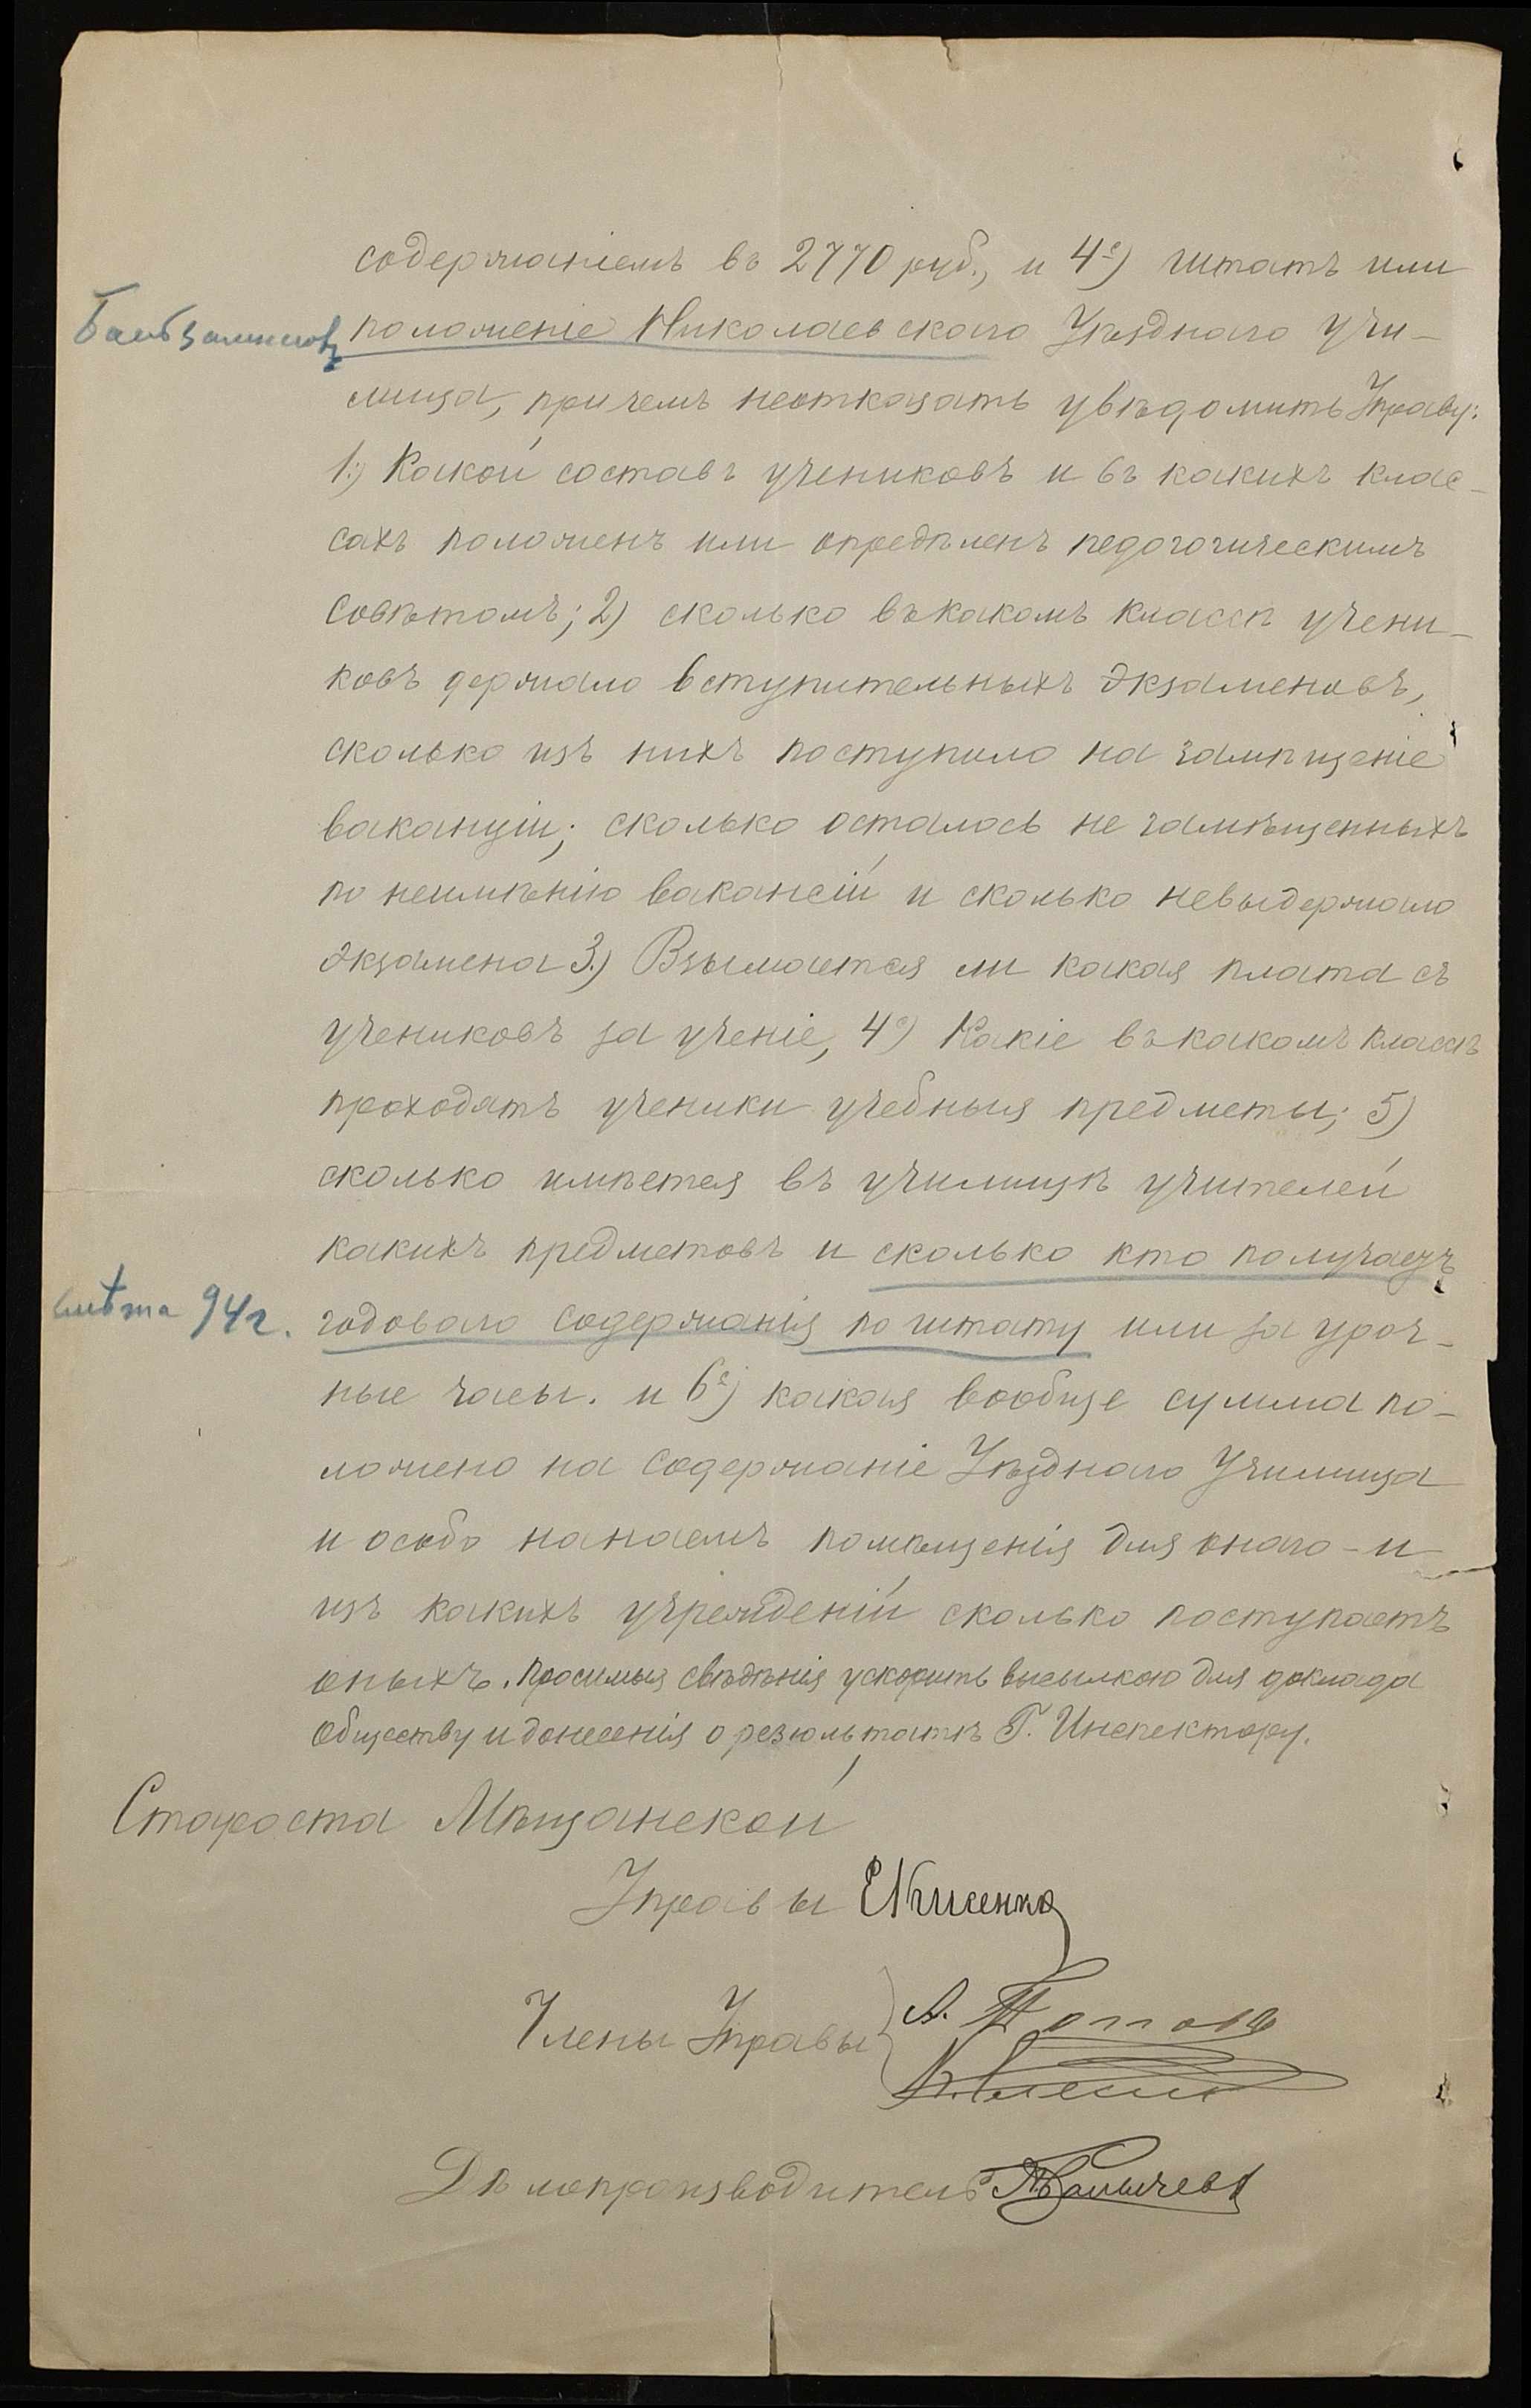 содержаніемъ въ 2770 руб., и 4е) штатъ или
положеніе Николаевскаго Уѣзднаго учи-
лища, причемъ неотказать увѣдомить Управу:
1.) Какой составъ учениковъ и въ какихъ клас-
сахъ положенъ или опредѣленъ педогогическимъ
совѣтомъ; 2) сколько въ какомъ классѣ учени-
ковъ держало вступительныхъ экзаменовъ,
сколько изъ нихъ поступило на замѣщеніе
ваканціи; сколько осталось не замѣщенныхъ
по неимѣнію вакансій и сколько невыдержало
экзамена 3.) Взымается ли какая плата съ
учениковъ за ученіе, 4е) Какіе въ какомъ классѣ
проходятъ ученики учебныя предметы; 5)
сколько имѣется въ училищѣ учителей
какихъ предметовъ и сколько кто получаетъ
смѣта 94 г. годоваго содержанія по штату или за уроч-
ные часы. и 6е) какая вообще сумма по-
ложено на содержаніе Уѣзднаго Училища
и особо нанаемъ помѣщенія для онаго - и
изъ какихъ учрежденій сколько поступаетъ
оныхъ. Просимыя свѣдѣнія ускорить высылкою для доклада
обществу и донесенія о резюльтатѣ Г. Инспектору.
Староста Мѣщанской
Управы
Члены Управы
Дѣлопроизводитель